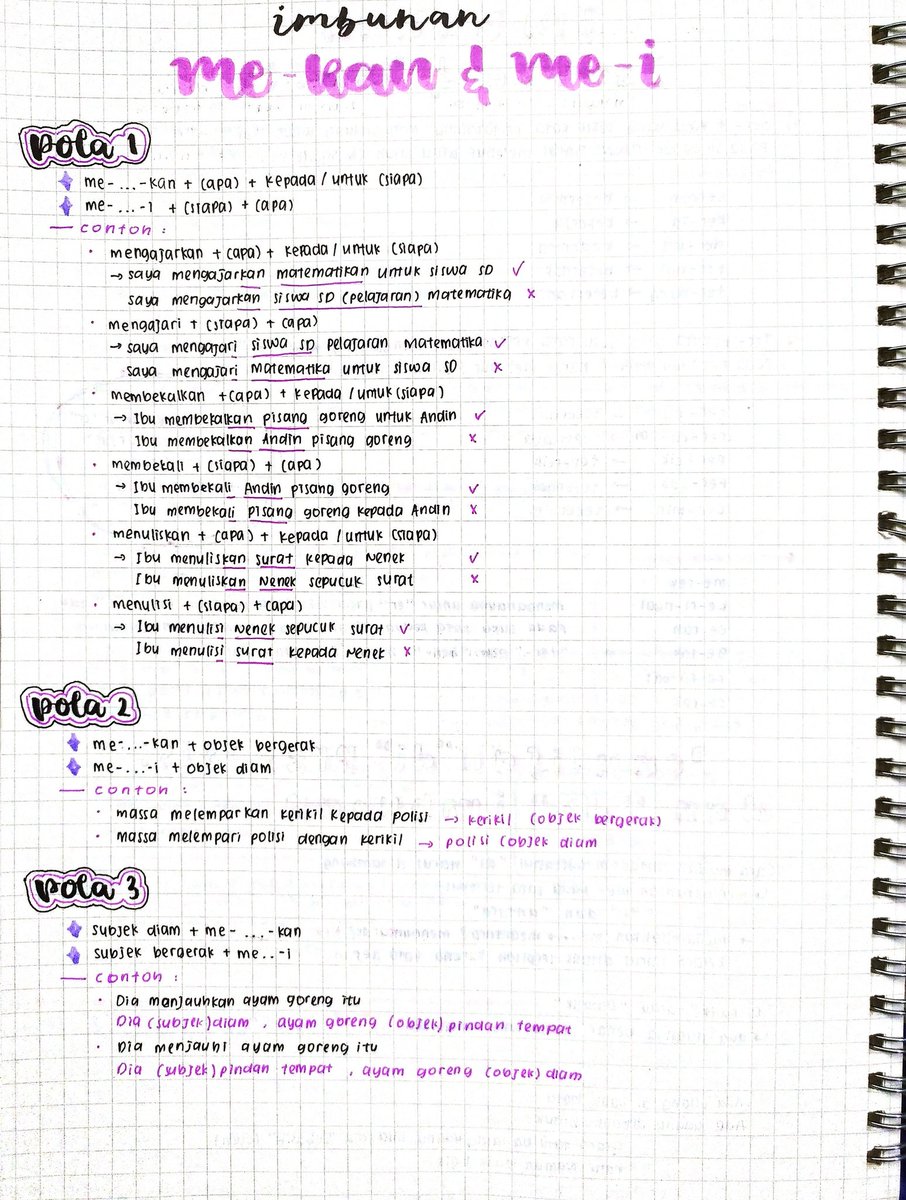 imbuhan
me-kan & me-i
pola 1
me-...-kan + (apa) + kepada / untuk (siapa)
me-...-i + (siapa) + (apa)
— contoh :
· mengajarkan + (apa) + kepada / untuk (siapa)
→ saya mengajarkan matematikan untuk siswa SD ✓
saya mengajarkan siswa SD (pelajaran) matematika ×
· mengajari + (siapa) + (apa)
→ saya mengajari siswa SD pelajaran matematika ✓
saya mengajari matematika untuk siswa SD ×
· membekalkan + (apa) + kepada / untuk (siapa)
→ Ibu membekalkan pisang goreng untuk Andin ✓
Ibu membekalkan Andin pisang goreng ×
· membekali + (siapa) + (apa)
→ Ibu membekali Andin pisang goreng ✓
Ibu membekali pisang goreng kepada Andin ×
· menuliskan + (apa) + kepada / untuk (siapa)
→ Ibu menuliskan surat kepada Nenek ✓
Ibu menuliskan Nenek sepucuk surat ×
· menulisi + (siapa) + (apa)
→ Ibu menulisi Nenek sepucuk surat ✓
Ibu menulisi surat kepada Nenek ×
pola 2
me-...-kan + objek bergerak
me-...-i + objek diam
— contoh :
· massa melemparkan kerikil kepada polisi → kerikil (objek bergerak)
· massa melempari polisi dengan kerikil → polisi (objek diam
pola 3
subjek diam + me- ...-kan
subjek bergerak + me..-i
— contoh :
· Dia menjauhkan ayam goreng itu
Dia (subjek) diam , ayam goreng (objek) pindah tempat
· Dia menjauhi ayam goreng itu
Dia (subjek) pindah tempat , ayam goreng (objek) diam